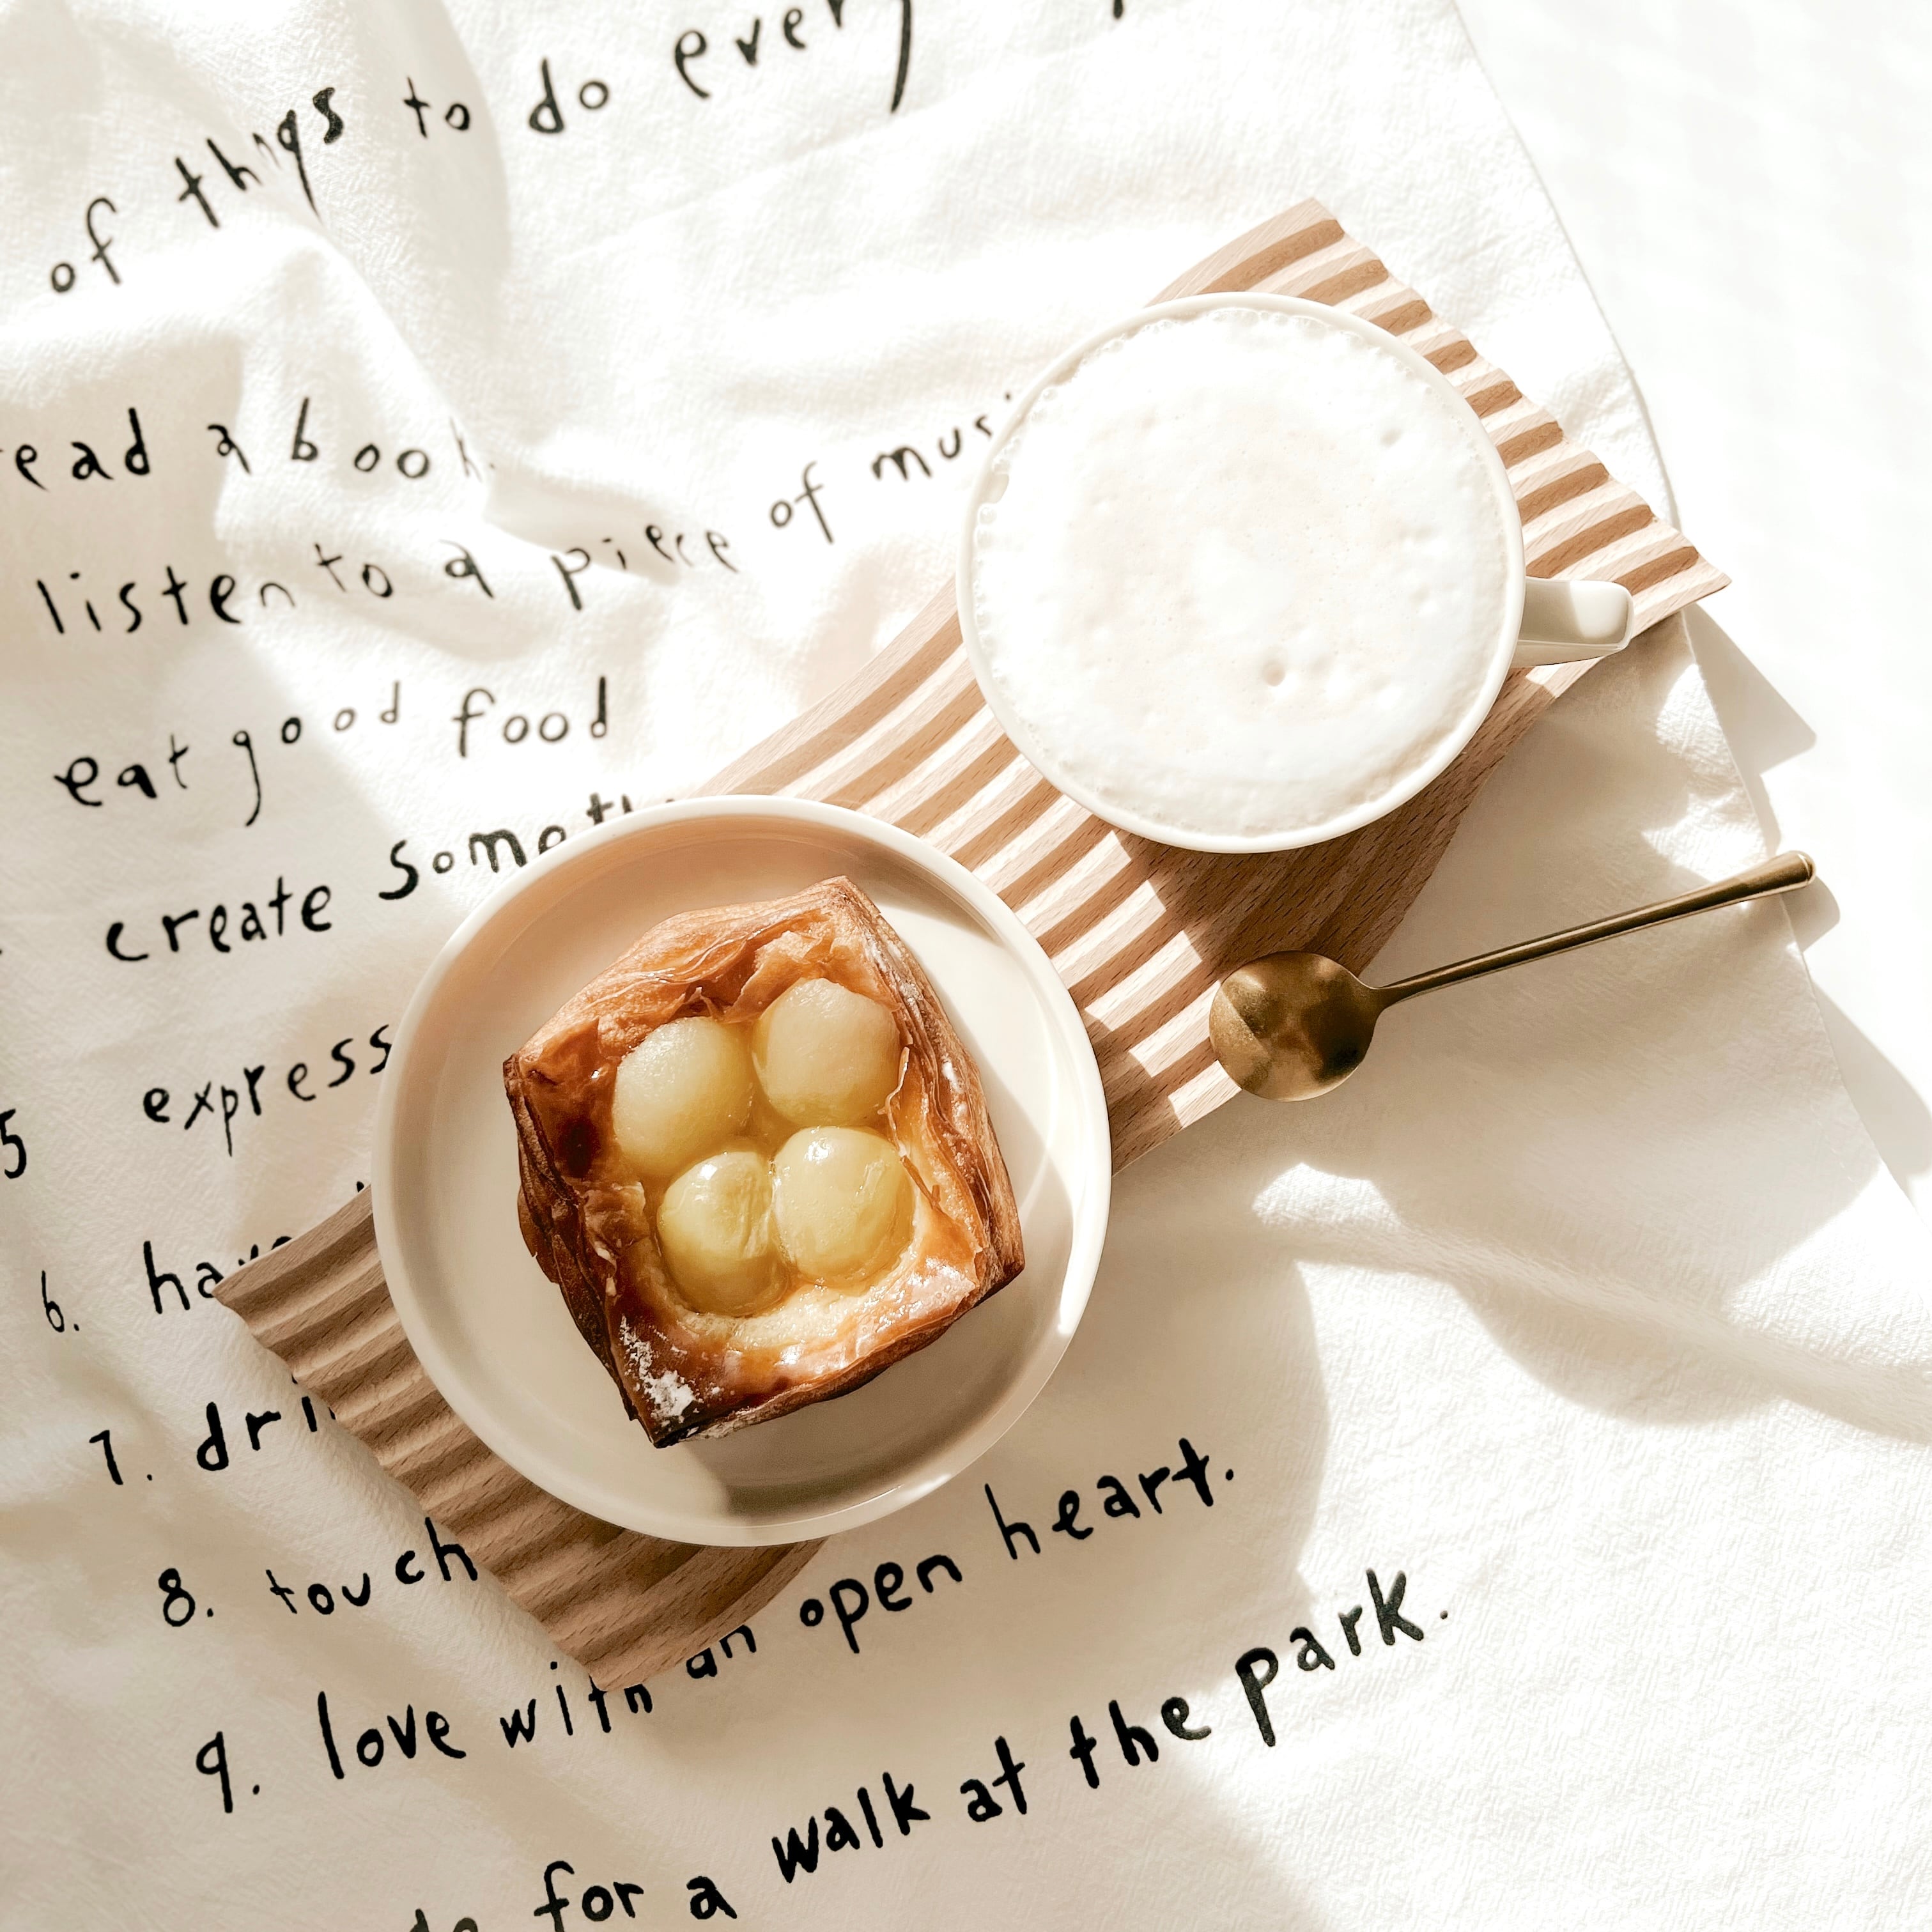 of things to do every
a book.
listen to a piece of
eat good food
create
5 express
6.
7.
8. touch
9. love with an open heart.
for a walk at the park.